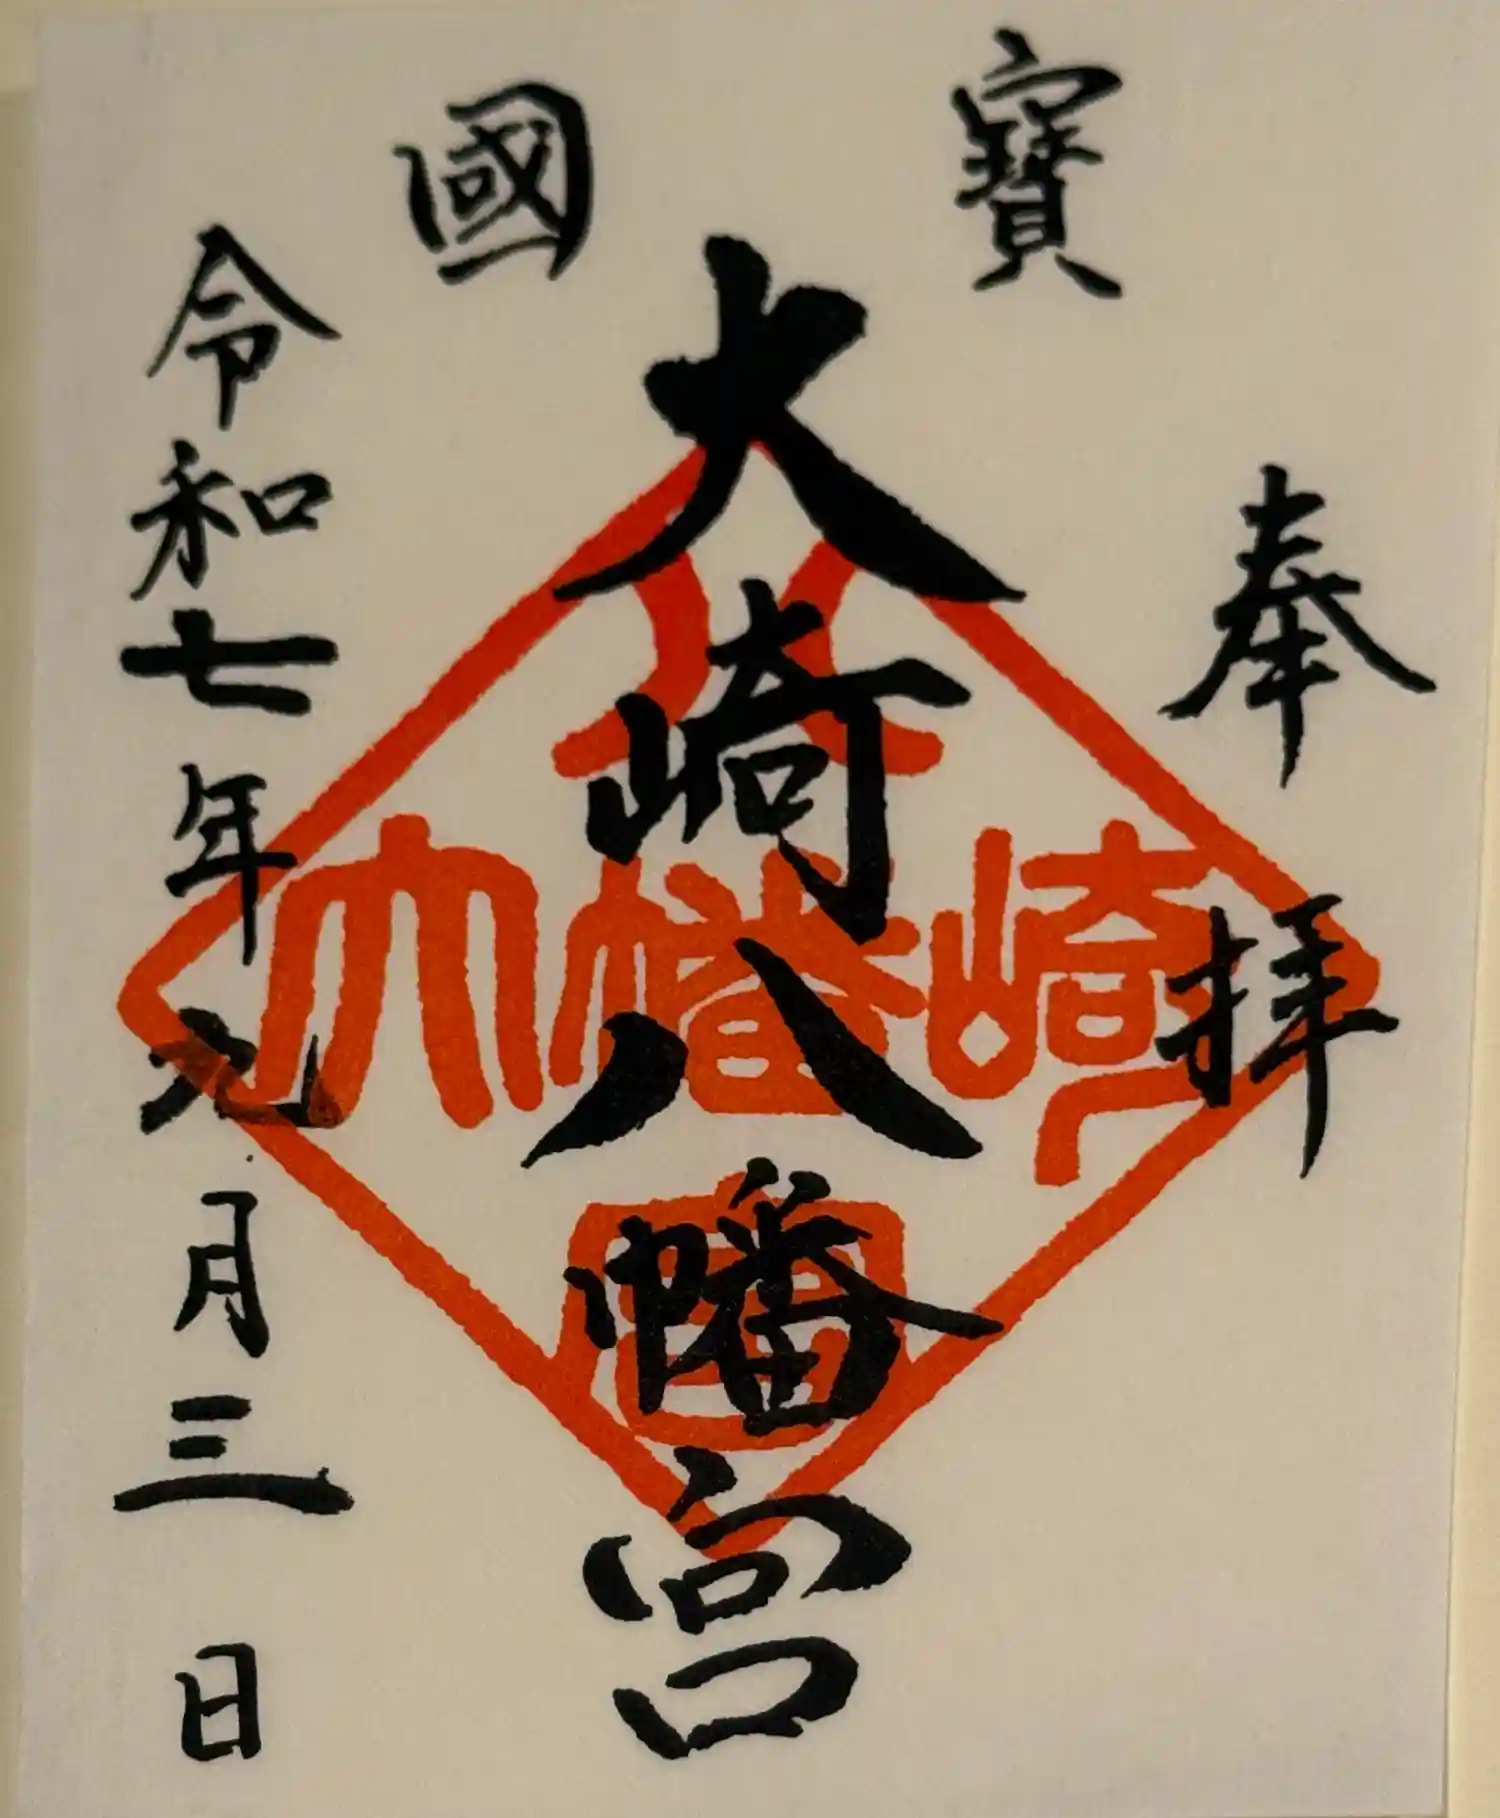 國寶
奉拝
大崎八幡宮
令和七年九月三日
大崎八幡宮